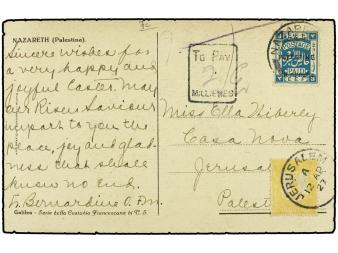 NAZARETH (Palestina).
Sincere wishes for
a very happy and
joyful Easter. May
our Risen Saviour
impart to you the
peace, joy and glad-
ness that shall
know no end.
Fr. Bernardino O.F.M.
Galilea - Serie della Custodia Francescana di T. S.
TO PAY
MILLIEMES
POSTAGE
PAID
E.E.F.
Miss Ella
Casa Nova
Jerusalem
Palest
JERUSALEM
A
12 AP
21